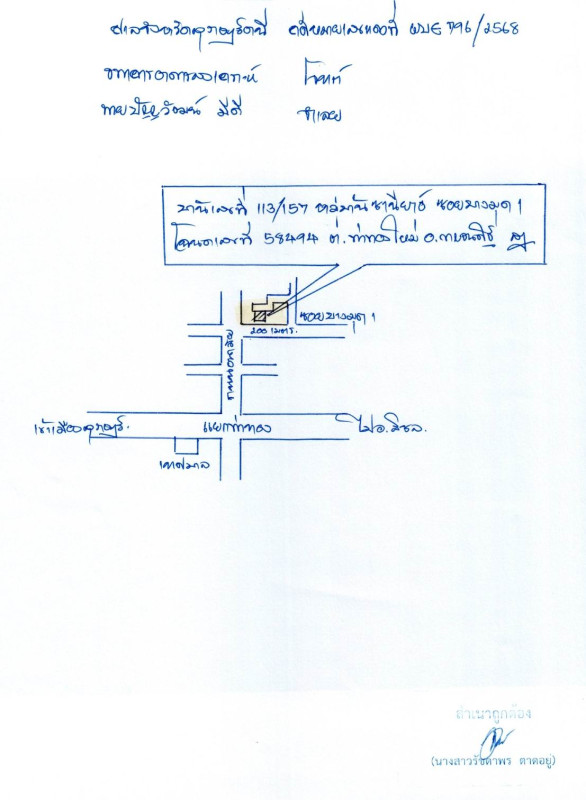 ศาลจังหวัดสุราษฎร์ธานี คดีหมายเลขแดงที่ ผบE 796/2568
ธนาคารอาคารสงเคราะห์ โจทก์
นายปัญญวัฒน์ มีดี จำเลย
บ้านเลขที่ 113/157 หมู่บ้านธานียาร์ ซอยบางมุด 1
โฉนดเลขที่ 58494 ต.ท่าทองใหม่ อ.กาญจนดิษฐ์ สฎ
ซอยบางมุด 1
200 เมตร.
ถนน
เข้าเมืองสุราษฎร์.
แยกท่าทอง
ไปอ.สิชล.
เทศบาล
สำเนาถูกต้อง
(นางสาวรัชดาพร ตาดอยู่)